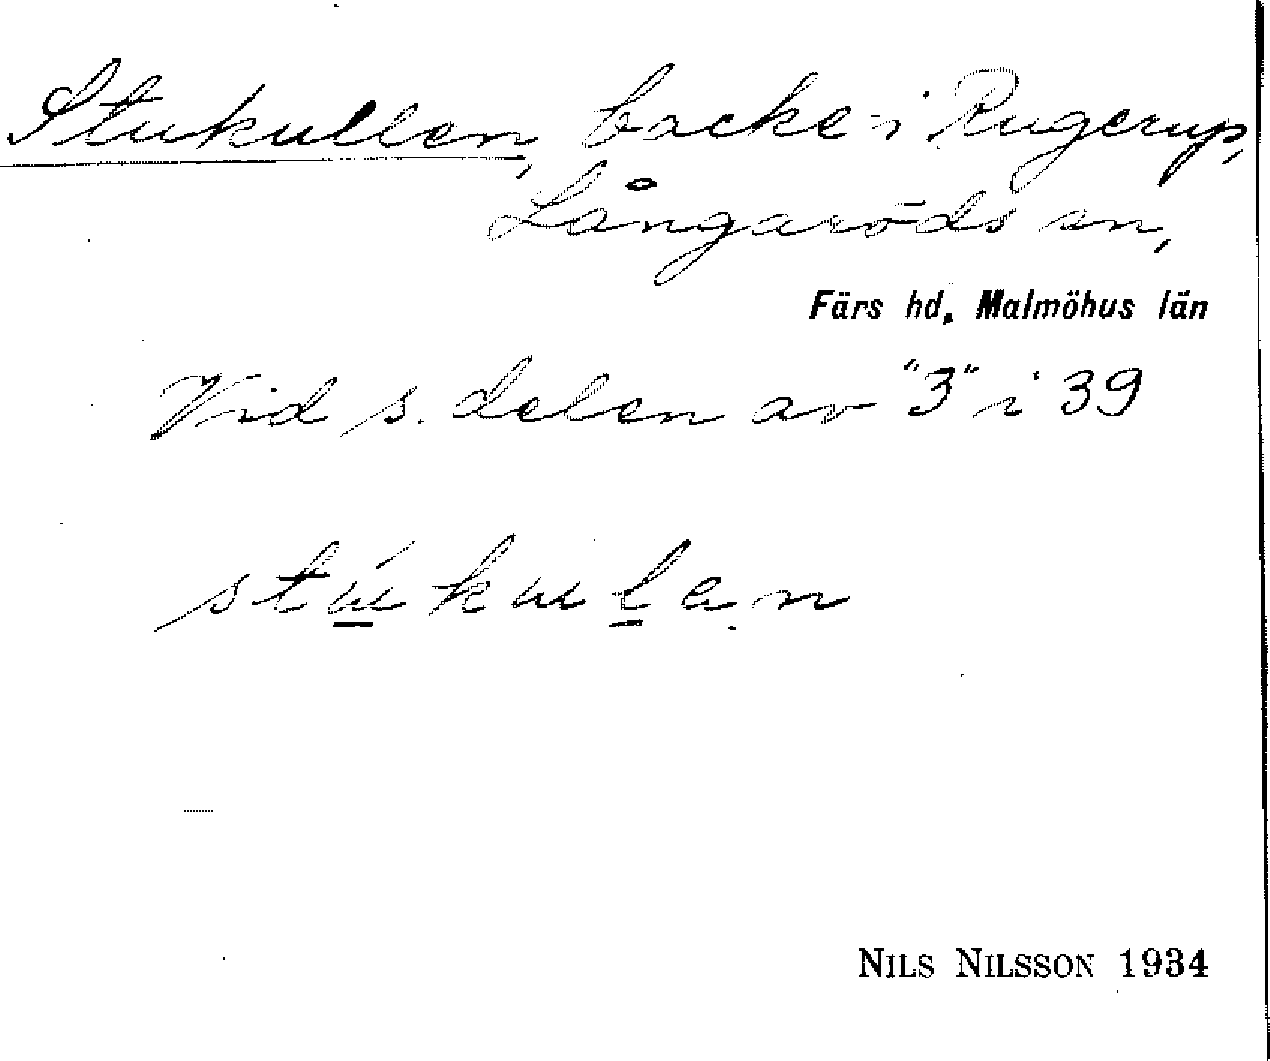 Stukullen, backe i Rugerup,
Långaröds sn,
Färs hd, Malmöhus län
Vid s. delen av "3" i 39
stú̱kuḻạn
NILS NILSSON 1934